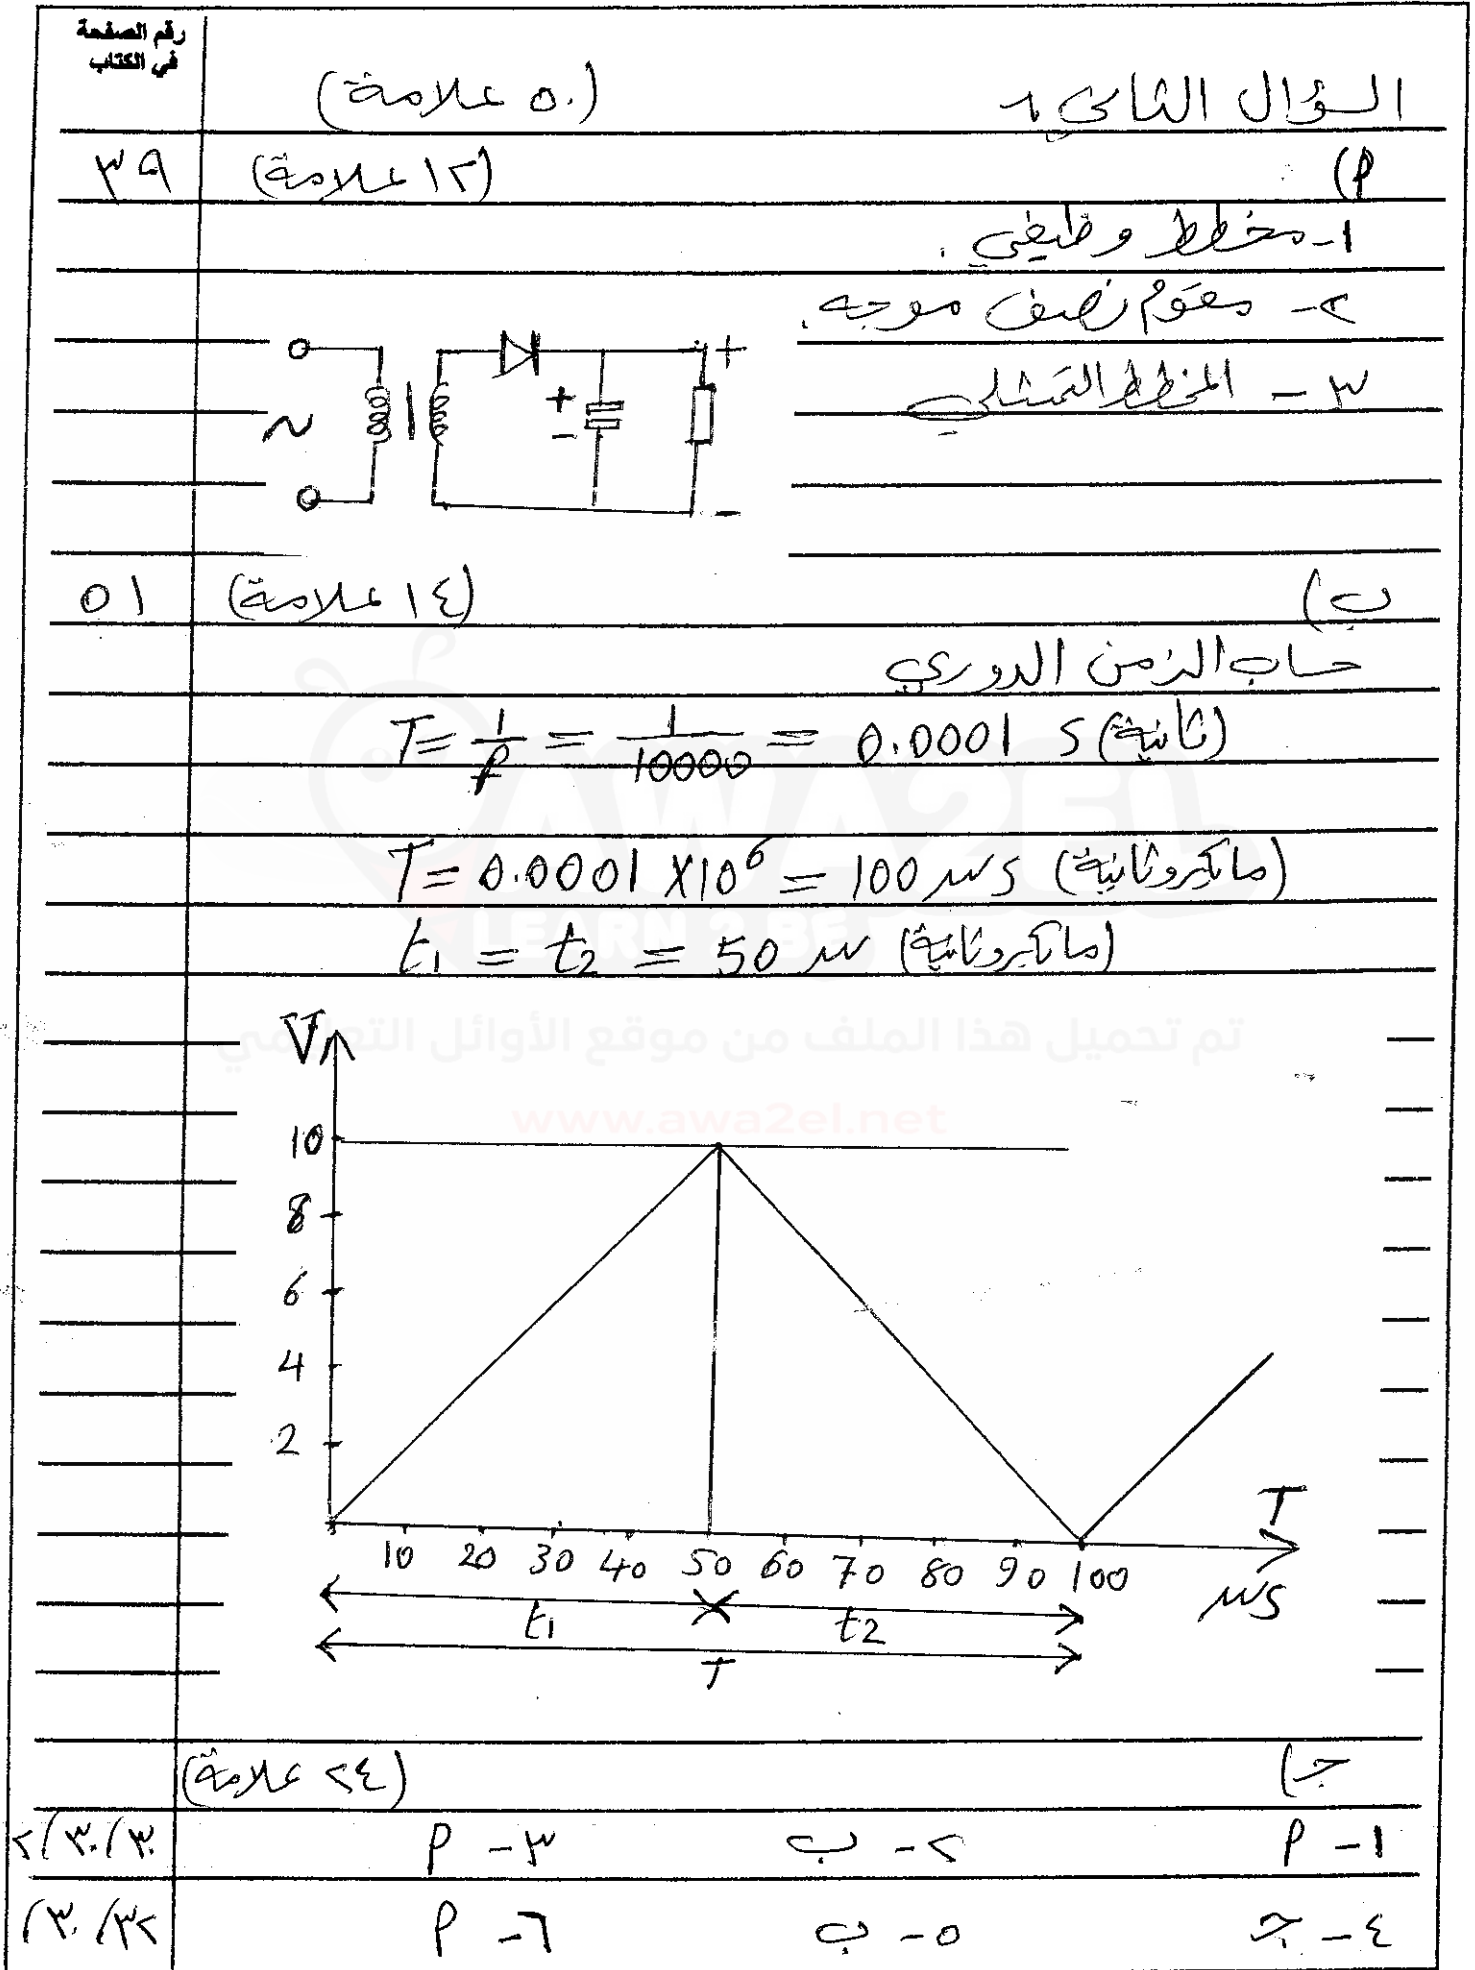 رقم الصفحة
في الكتاب
السؤال الثاني :- (٥٠ علامة)
أ) (١٢ علامة) ٣٩
١- مخطط وظيفي .
٢- مقوم نصف موجه.
٣- المخطط التمثيلي
~ + - + -
ب) (١٤ علامة) ٥١
حساب الزمن الدوري
T = 1/f = 1/10000 = 0.0001 S (ثانية)
T = 0.0001 X10⁶ = 100 µs (مايكروثانية)
t1 = t2 = 50 µ (مايكروثانية)
تم تحميل هذا الملف من موقع الأوائل التعليمي
AWA2EL
LEARN 2 BE
www.awa2el.net
V
10
8
6
4
2
10 20 30 40 50 60 70 80 90 100
T
µs
t1 t2
T
جـ) (٢٤ علامة)
١- أ ٢- ب ٣- أ ٣٠/٣٠/٢
٤- جـ ٥- ب ٦- أ ٣٢/٣٠/